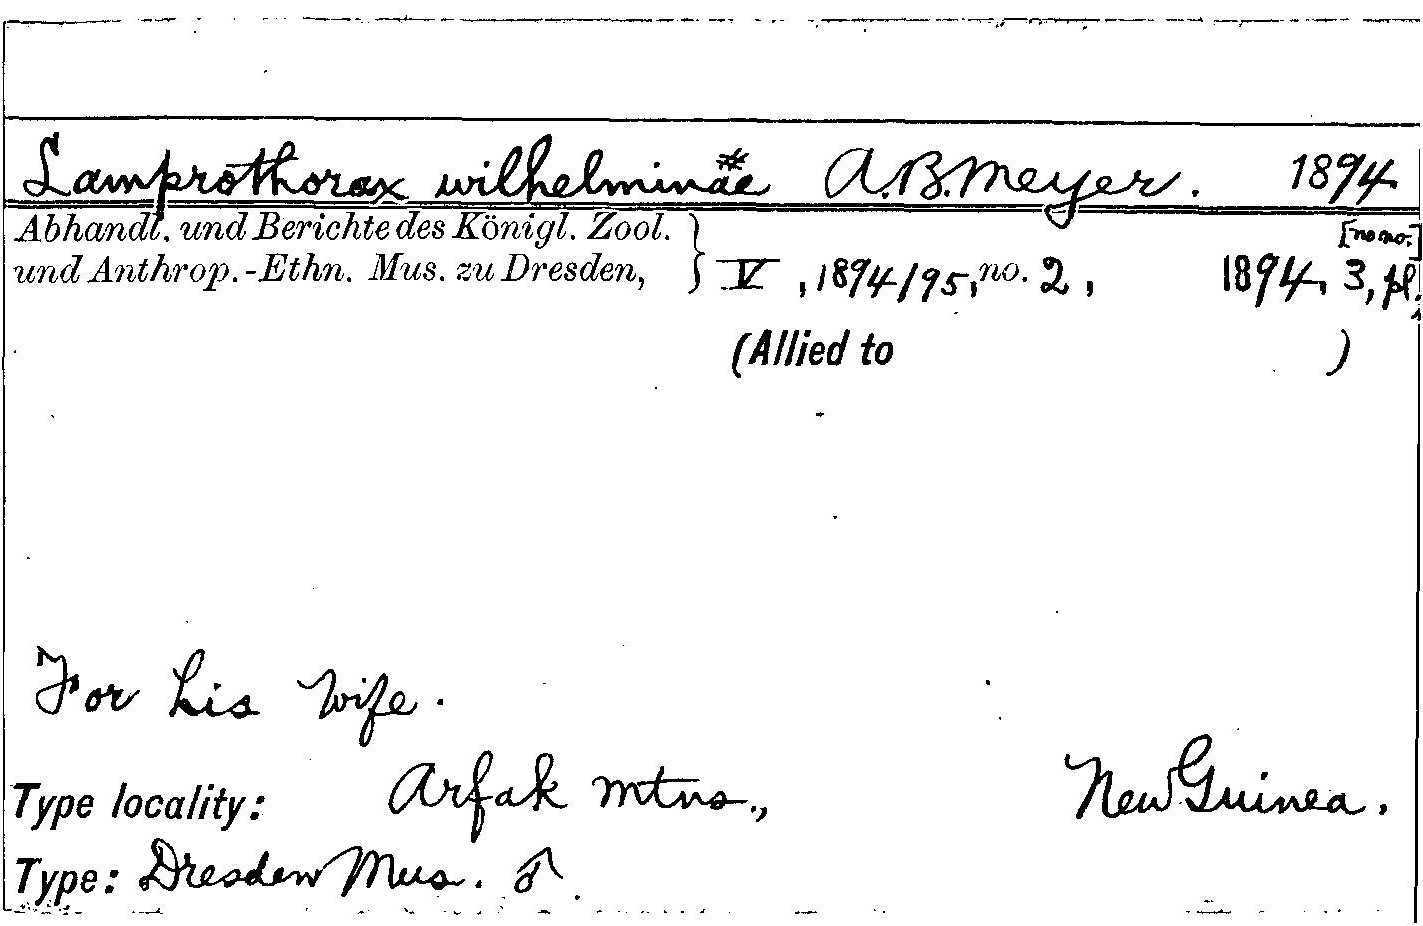 Lamprothorax wilhelminae # A.B. Meyer. 1894
Abhandl. und Berichte des Königl. Zool. [no no.]
und Anthrop.-Ethn. Mus. zu Dresden, } V, 1894/95, no. 2, 1894, 3, pl.
(Allied to )
For his wife.
Type locality: Arfak mtns., New Guinea.
Type: Dresden Mus. ♂.